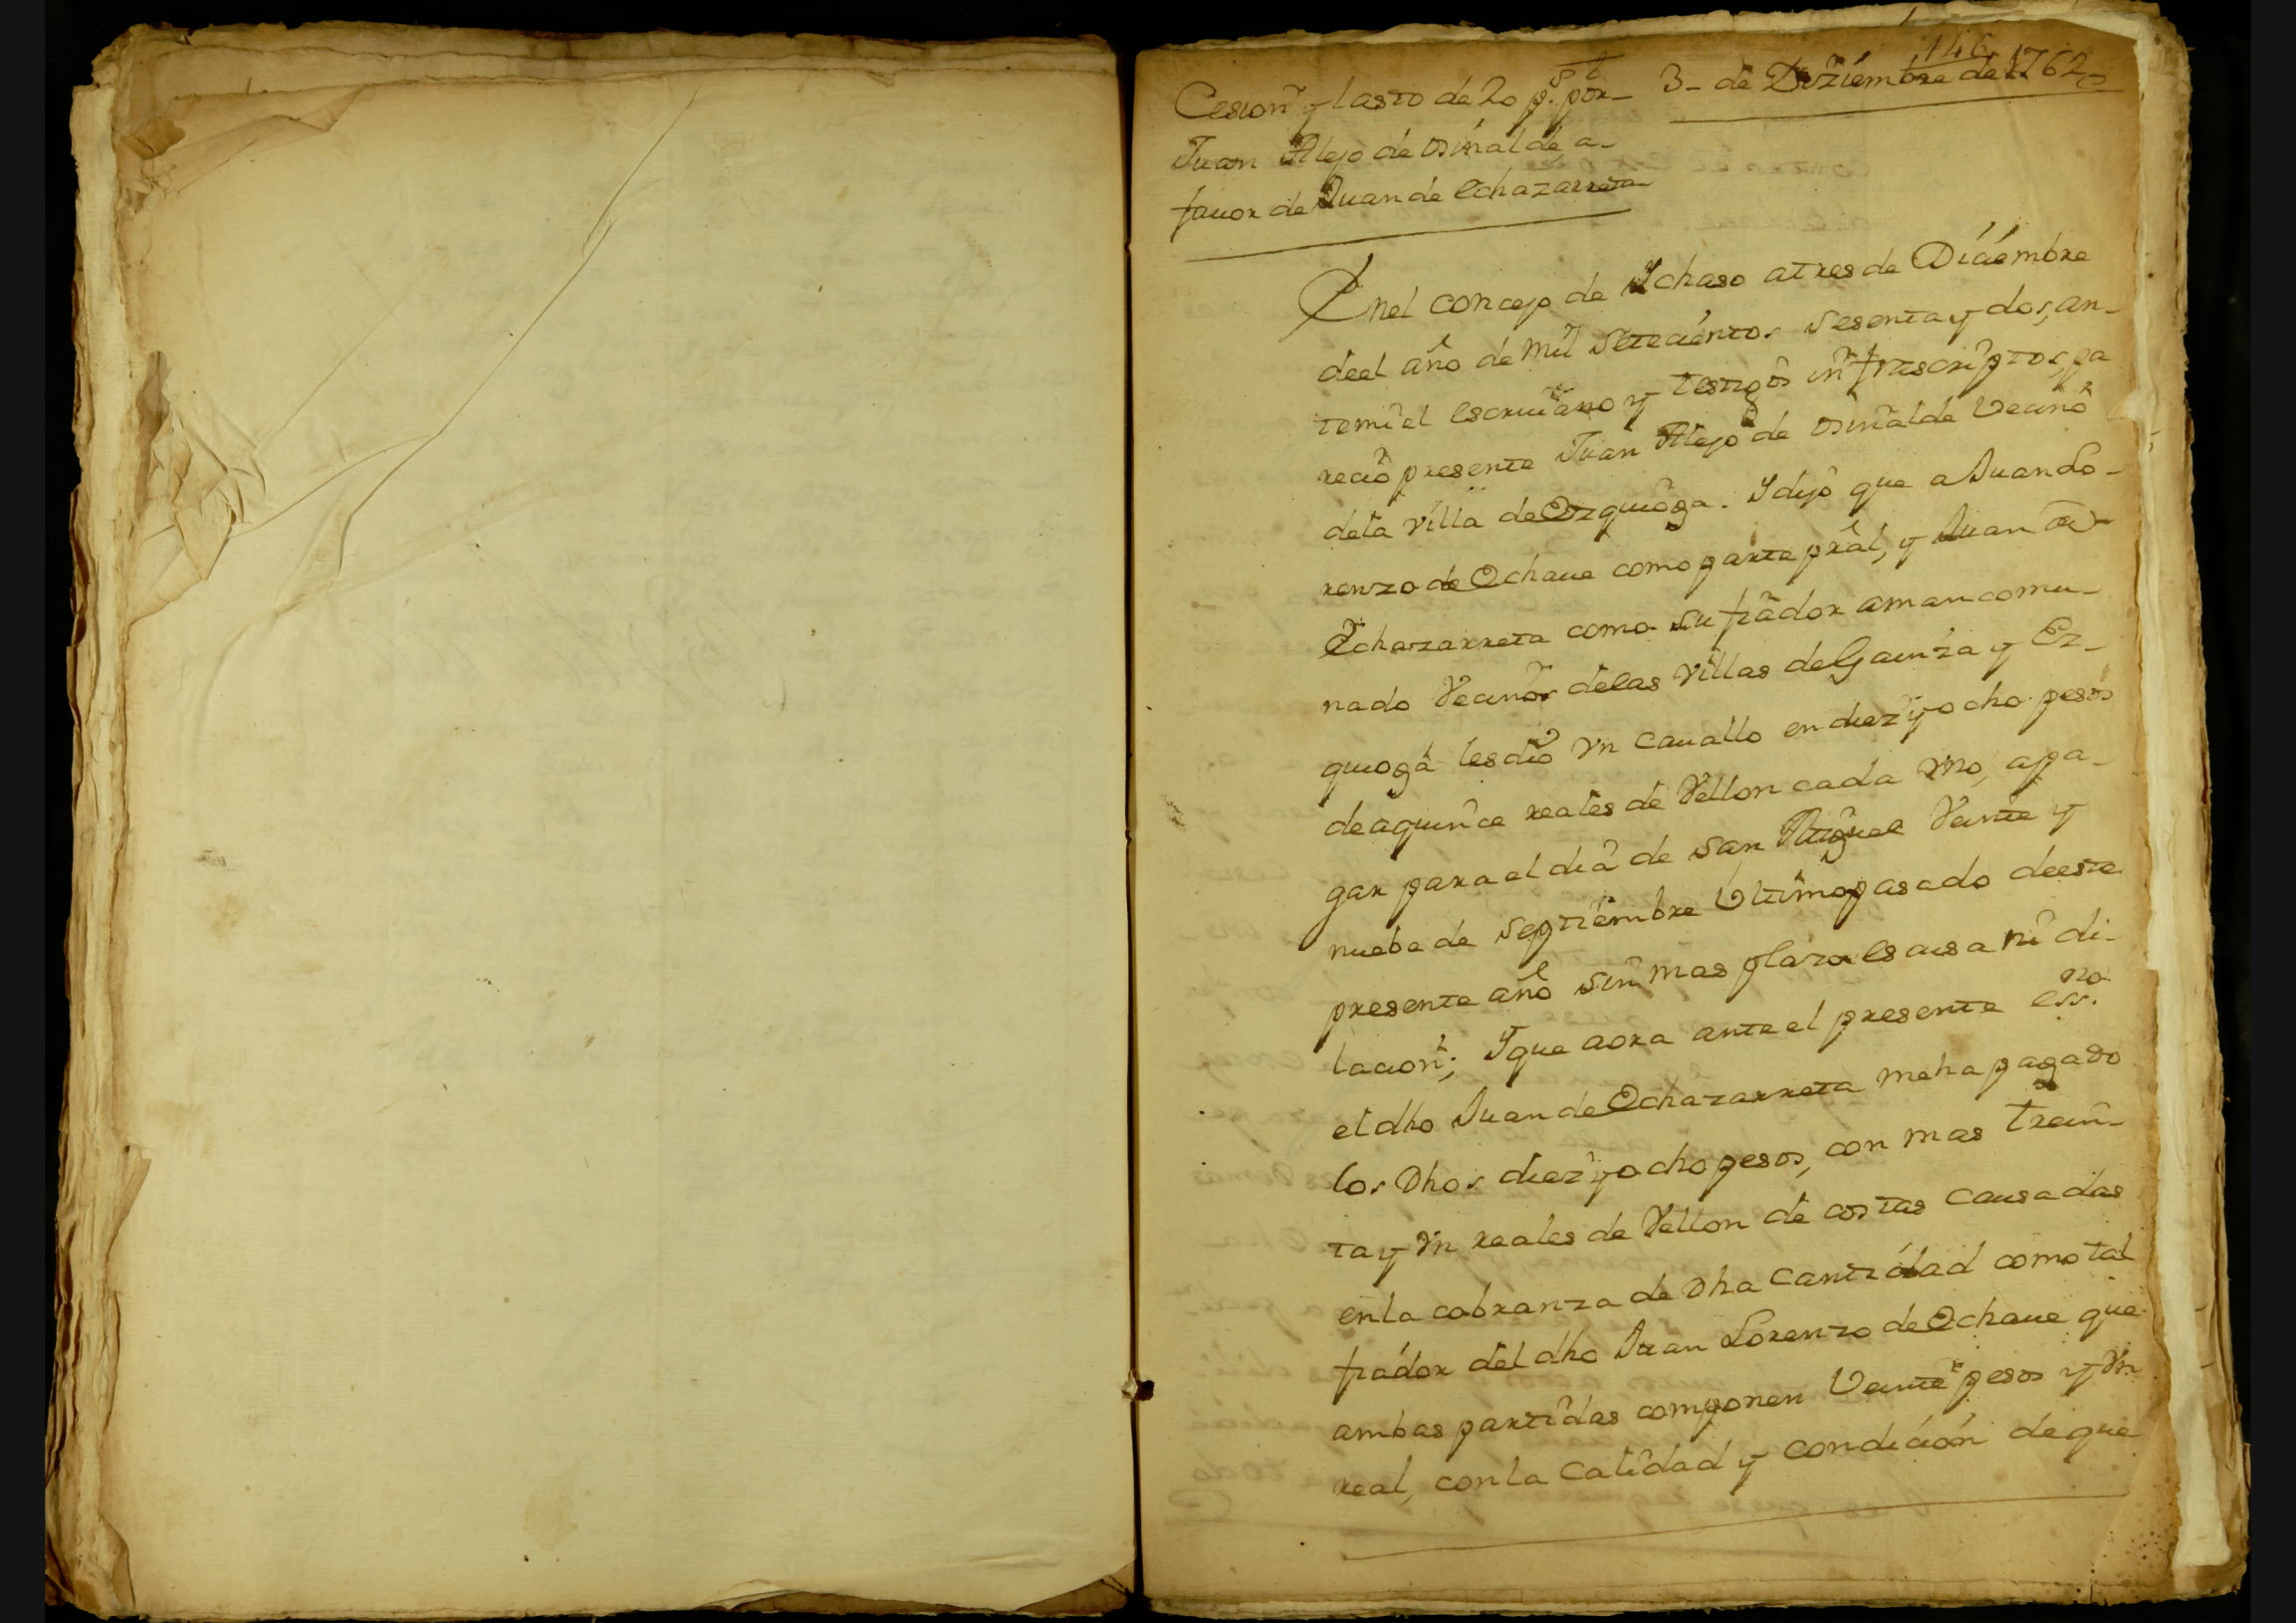 146
Cesion y lasto de 20 ps. por
3- de Diziembre de 1762
Juan Alejo de osinalde, a-
fauor de Juan de Echazarreta
Enel concejo de Ychaso atres de Diciembre
deel año de mil setecientos sesenta y dos, an-
temi el escriuano y testigos infrascriptos, pa
recio presente Juan Alejo de osinalde Vecino
dela villa de Ezquioga. Y dijo que a Juan Lo-
renzo de Echaue como parte pral, y Juan de
Echazarreta como su fiador amancomu-
nado Vecinos delas villas de Gainza y Ez-
quioga les dio vn cauallo en diez y ocho pesos
deaquince reales de Vellon cada vno, apa-
gar para el dia de san Miguel Veinte y
nuebe de septiembre Vltimo pasado deeste
presente año sin mas plazo escusa ni di-
lacion; Y que aora ante el presente essno.
el dho Juan de Echazarreta meha pagado
los Dhos diez y ocho pesos, con mas trein-
ta y vn reales de Vellon de costas causadas
enla cobranza de Dha cantidad como tal
fiador del dho Juan Lorenzo de Echaue que
ambas partidas componen Veinte pesos y vn
real, con la calidad y condicion de que